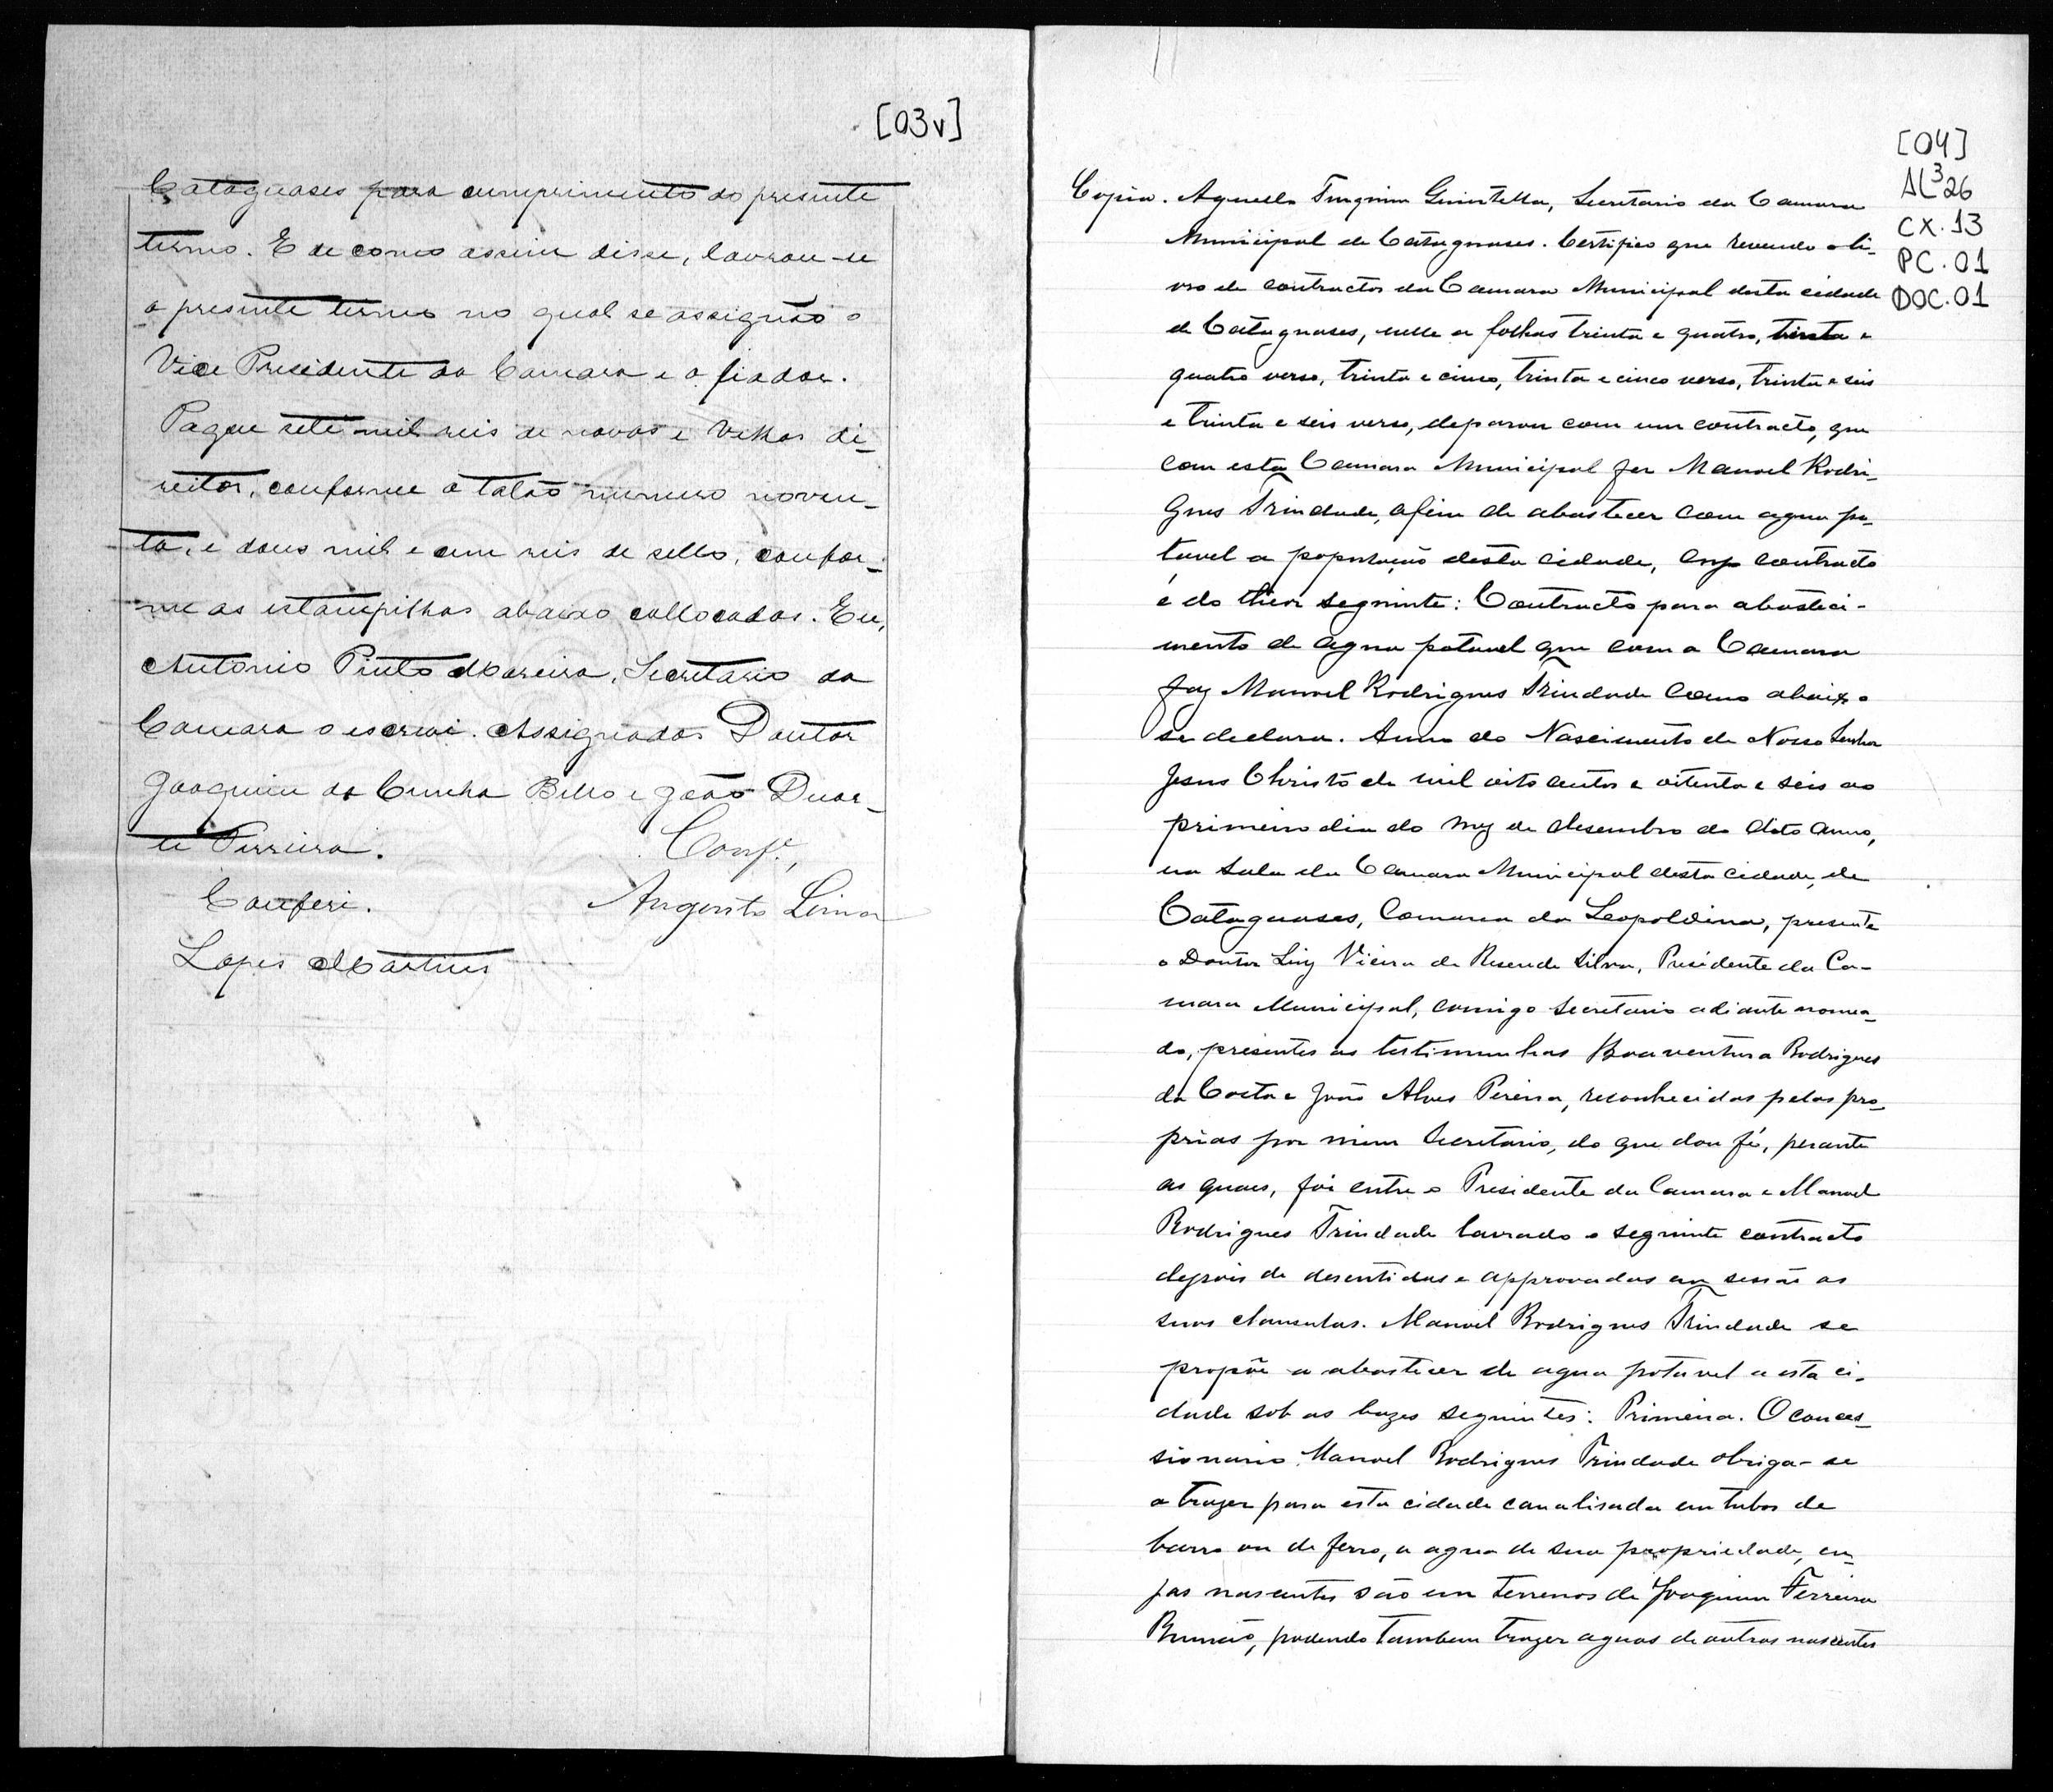 [03v]
Cataguases para cumprimento do presente
termo. E de como assim disse, lavrou-se
o presente termo no qual se assignão o
Vice Presidente da Camara e o fiador.
Pague sete mil reis de novos e velhos di-
reitos, conforme o talão numero noven-
ta, e dous mil e cem reis de sello, confor-
me as estampilhas abaixo collocadas. Eu,
Antonio Pinto Moreira, Secretario da
Camara o escrevi. Assignados Doutor
Joaquim da Cunha Bello e João Duar-
te Ferreira.
Conf.e,
Conferi.
Augusto Lima
Lopes Martins
[04]
AL³26
CX.13
PC.01
DOC.01
Copia. Aquella Turgium Quintella, Secretario da Camara
Municipal de Cataguases. Certifico que revendo o li-
vro de contractos da Camara Municipal desta cidade
de Cataguases, nelle a folhas trinta e quatro, trinta e
quatro verso, trinta e cinco, trinta e cinco verso, trinta e seis
e trinta e seis verso, deparou com um contracto, que
com esta Camara Municipal fez Manoel Rodri-
gues Trindade, afim de abastecer com agua po-
tavel a população desta cidade, cujo contracto
é do theor seguinte: Contracto para abasteci-
mento de agua potavel que com a Camara
faz Manoel Rodrigues Trindade como abaixo
se declara. Anno do Nascimento de Nosso Senhor
Jesus Christo de mil oito centos e oitenta e seis ao
primeiro dia do mez de desembro do dito anno,
na sala da Camara Municipal desta cidade, de
Cataguases, Comarca da Leopoldina, presente
o Doutor Luiz Vieira de Resende Silva, Presidente da Ca-
mara Municipal, comigo secretario adiante nomea-
do, presentes as testimunhas Boaventura Rodrigues
da Costa e João Alves Pereira, reconhecidas pelas pro-
prias por mim Secretario, do que dou fé, perante
as quaes, foi entre o Presidente da Camara e Manoel
Rodrigues Trindade lavrado o seguinte contracto
depois de descutidas e approvadas em sessão as
suas clausulas. Manoel Rodrigues Trindade se
propõe a abastecer de agua potavel a esta ci-
dade sob as bazes seguintes: Primeira. O conces-
sionario Manoel Rodrigues Trindade obriga-se
a trazer para esta cidade canalisada em tubos de
barro ou de ferro, a agua de sua propriedade, cu-
jas nascentes são em terrenos de Joaquim Ferreira
Brumão, podendo tambem trazer aguas de outras nascentes